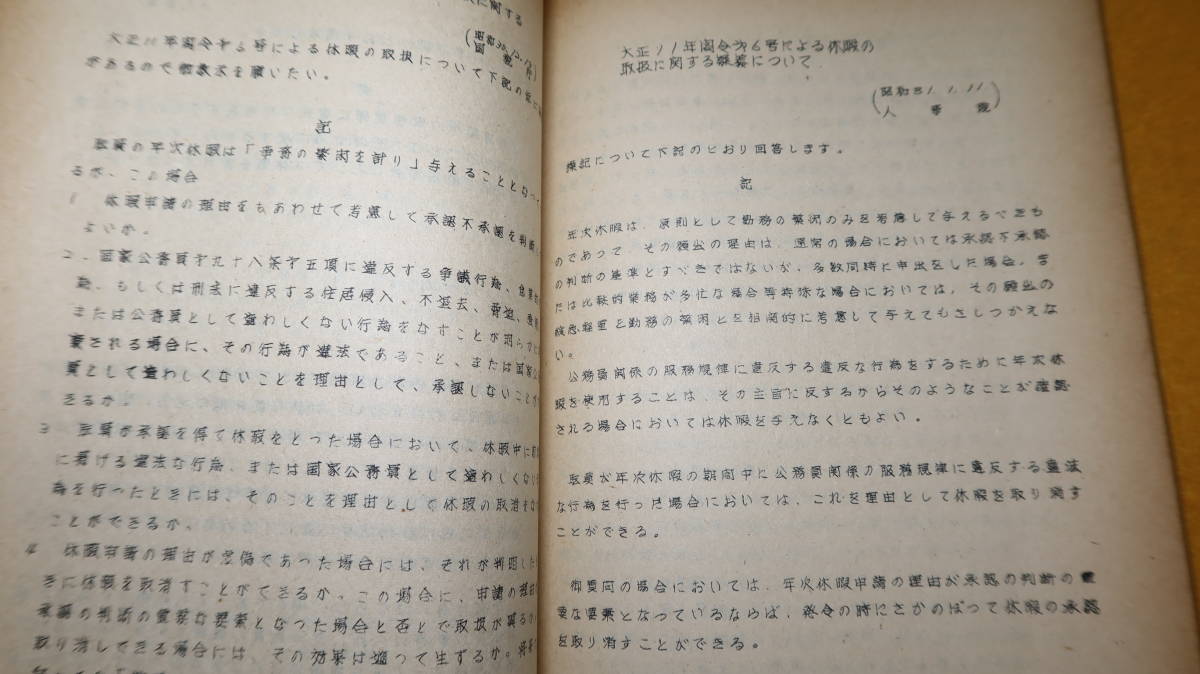 に関する
(昭和30.12.
大正11年閣令第6号による休暇の取扱について下記の
があるので御教示を願いたい。
記
職員の年次休暇は「事務の繁閑を計り」与えることとなつ
るが、この場合
1 休暇申請の理由をもあわせて考慮して承認不承認を判断
よいか。
2、国家公務員法第九十八条第五項に違反する争議行為、
為、もしくは刑法に違反する住居侵入、不退去、
または公務員として適わしくない行為をなすことが明らかに
案される場合に、その行為が違法であること、または国家公
員として適わしくないことを理由として、承認しないことが
きるか。
3 職員が承認を得て休暇をとった場合において、休暇中に前
に掲げる違法な行為、または国家公務員として適わしくない
為を行ったときには、そのことを理由として休暇の取消をな
ことができるか、
4 休暇申請の理由が虚偽であった場合には、それが判明した
きに休暇を取消すことができるか。この場合に、申請の理由
承認の判断の重要な要素となった場合と否とで取扱が異るか
取り消しできる場合には、その効果は遡って生ずるか。将来
大正11年閣令第6号による休暇の
取扱に関する疑義について
(昭和31.1.11)
人事院
標記について下記のとおり回答します。
記
年次休暇は、原則として勤務の繁況のみを考慮して与えるべきも
のであつて、その願出の理由は、通常の場合においては承認不承認
の判断の基準とすべきではないが、多数同時に申出をした場合、ま
たは比較的業務が多忙な場合等特殊な場合においては、その願出の
緩急軽重と勤務の繁閑とを相関的に考慮して与えてもさしつかえな
い。
公務員関係の服務規律に違反する違反な行為をするために年次休
暇を使用することは、その主旨に反するからそのようなことが確認
される場合においては休暇を与えなくともよい。
職員が年次休暇の期間中に公務員関係の服務規律に違反する違法
な行為を行った場合においては、これを理由として休暇を取り消す
ことができる。
御質問の場合においては、年次休暇申請の理由が承認の判断の重
要な要素となっているならば、発令の時にさかのぼって休暇の承認
を取り消すことができる。